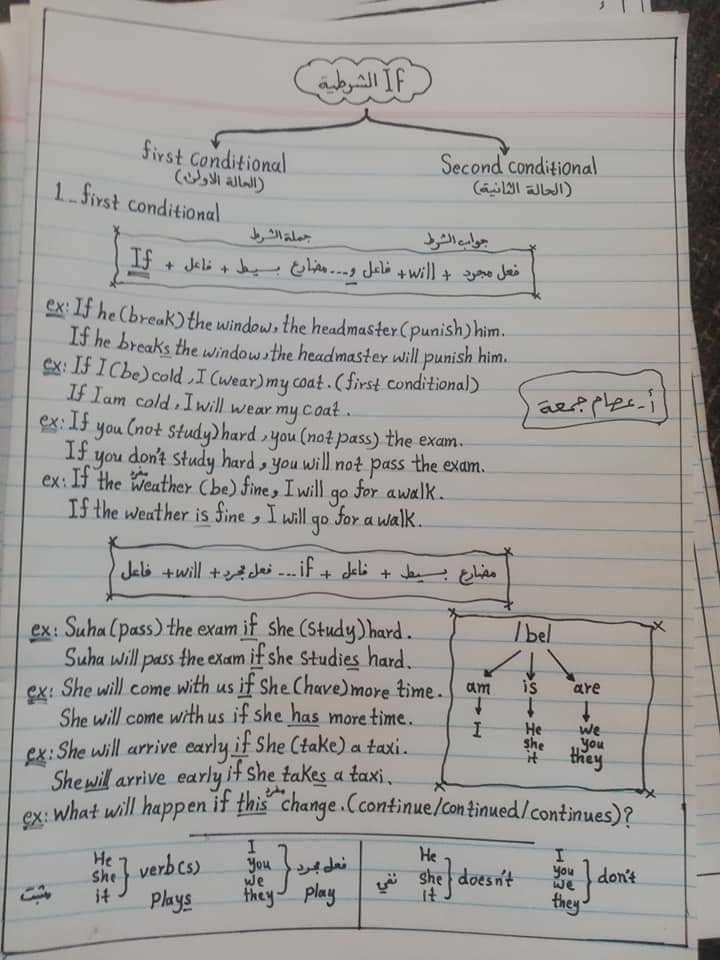 If الشرطية
first conditional
(الحالة الاولى)
Second conditional
(الحالة الثانية)
1_ first conditional
جملة الشرط
جواب الشرط
If + فاعل + مضارع بسيط ...و فاعل +will + فعل مجرد
ex: If he (break) the window, the headmaster (punish) him.
If he breaks the window, the headmaster will punish him.
ex: If I (be) cold, I (wear) my coat. (first conditional)
If I am cold, I will wear my coat.
أ- عصام جمعة
ex: If you (not study) hard, you (not pass) the exam.
If you don't study hard, you will not pass the exam.
مفرد
ex: If the weather (be) fine, I will go for a walk.
If the weather is fine, I will go for a walk.
فاعل +will + فعل مجرد ...if + فاعل + مضارع بسيط
ex: Suha (pass) the exam if she (study) hard.
Suha will pass the exam if she studies hard.
ex: She will come with us if she (have) more time.
She will come with us if she has more time.
ex: She will arrive early if she (take) a taxi.
She will arrive early if she takes a taxi.
/be/
am is are
I He we
she you
it they
مفرد
ex: What will happen if this change. (continue/continued/continues)?
مثبت
He
she
it
verb(s)
plays
I
you
we
they
فعل مجرد
play
نفي
He
she
it
doesn't
I
you
we
they
don't